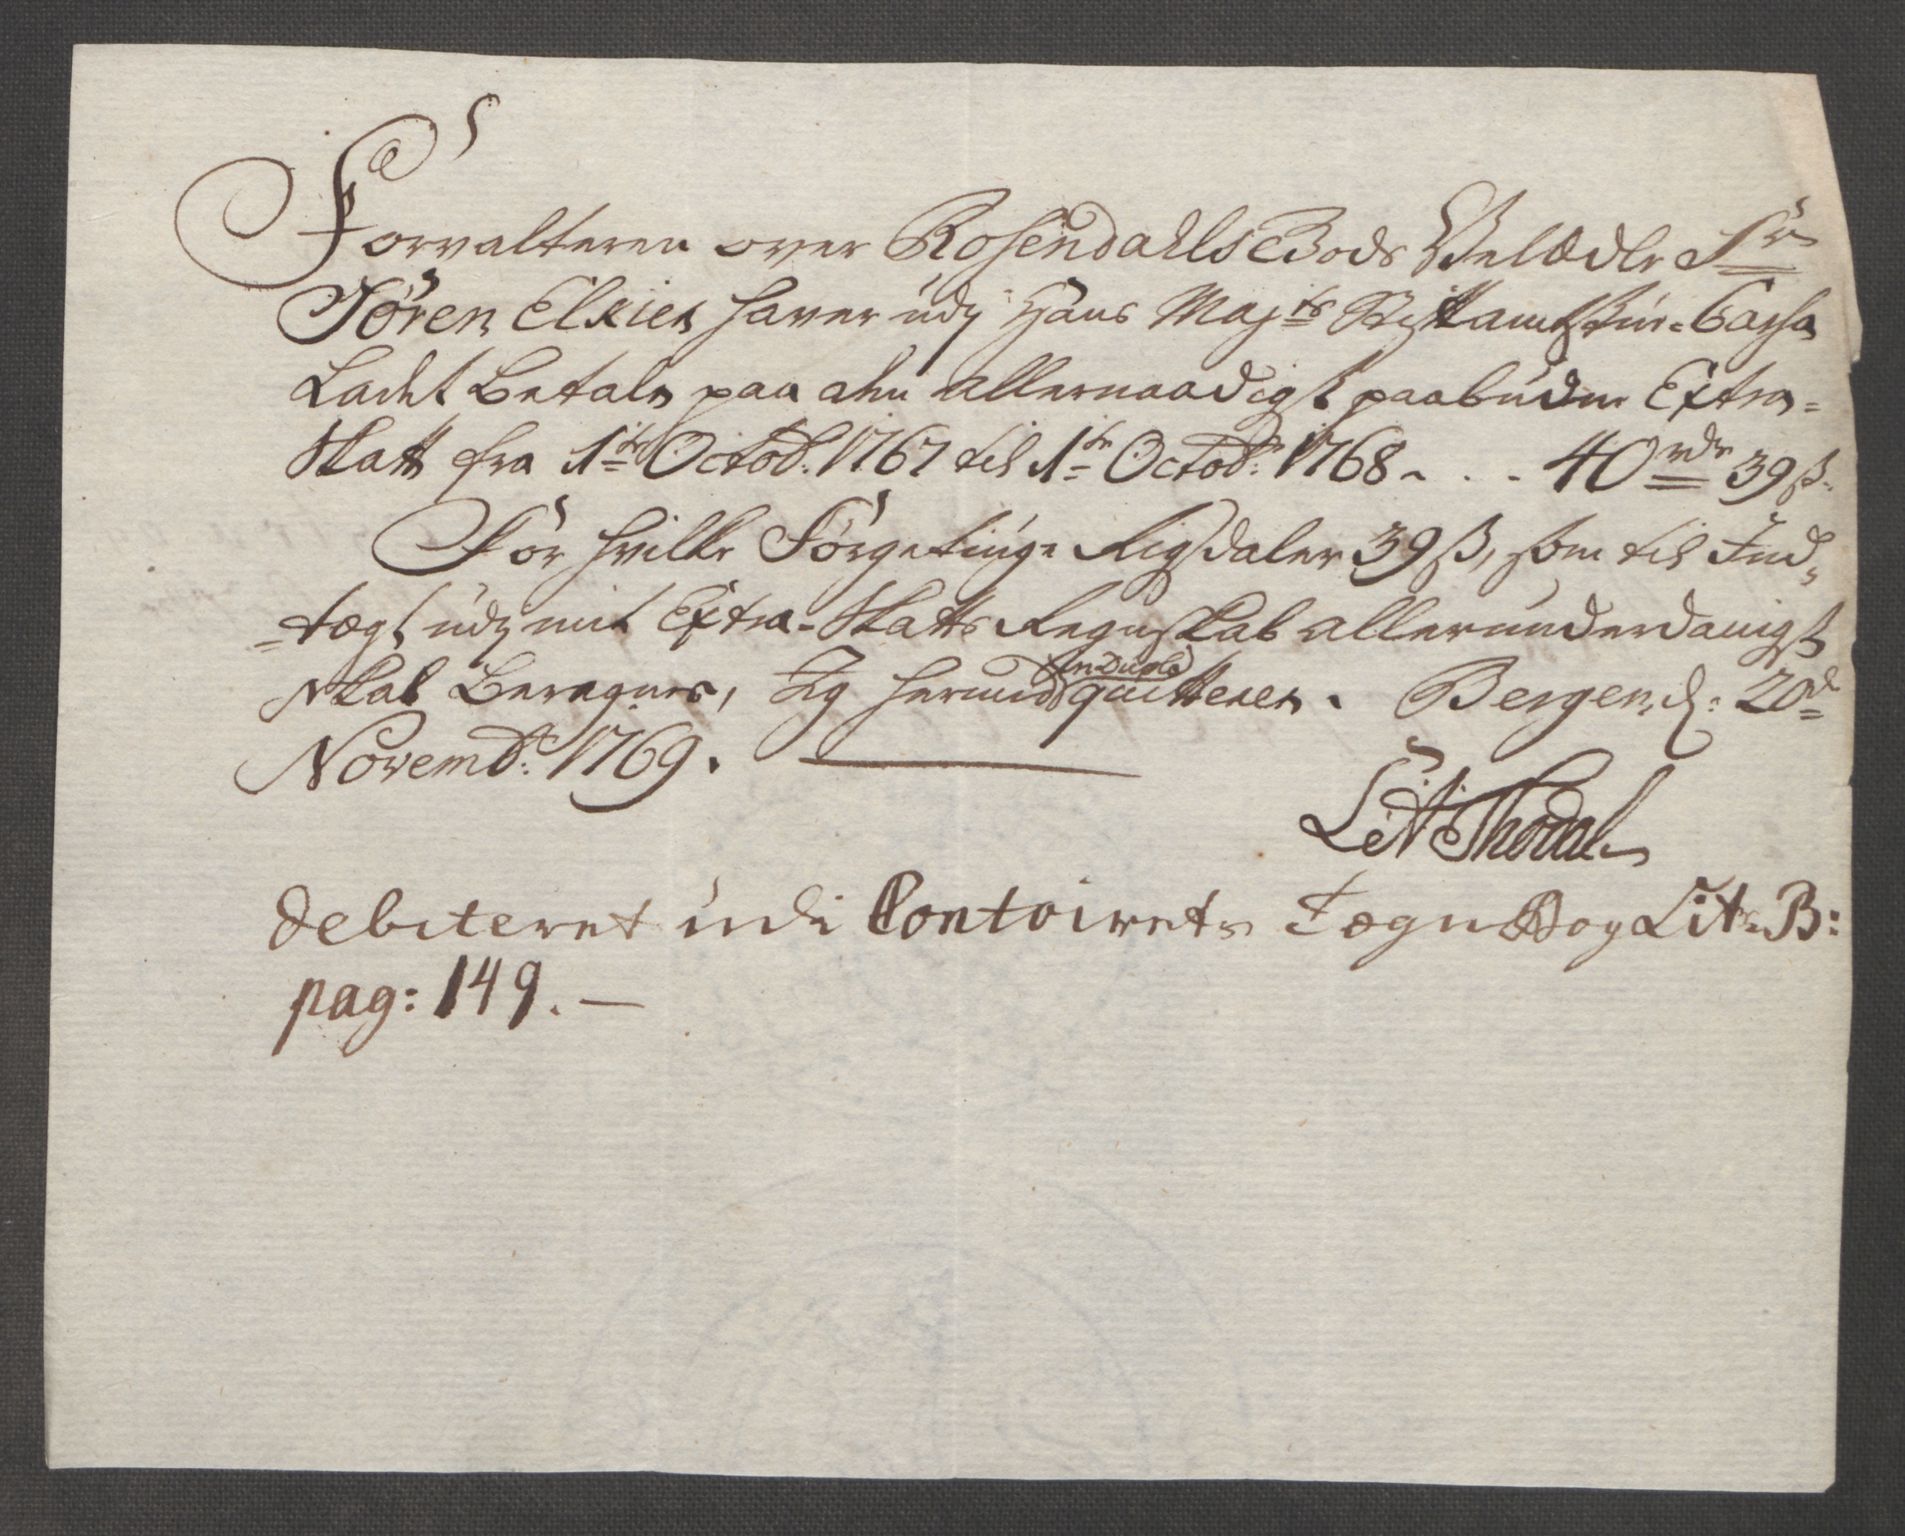 Forvalteren over Rosendahls Gods Velædle Sr
Sören Elkier haver udj Hans Majts Stiftamtstue-Cassa
Ladet betale paa den allernaadigst paabudne Extra-
Skatt fra 1te Octob: 1767 til 1te Octob: 1768 - . . - 40 rdr 39 ß.
For hvilke Förgetiuge Rigsdaler 39 ß, som til Ind-
=tægt udj mit Extra-Skatts Regnskab allerunderdanigst
skal Beregnes, Jeg herved in Duplo quitterer. Bergen, d: 20de
Novembr: 1769.
Thodal
debiteret udi Contoirets Tegne Bog Lit: B:
pag: 149. —